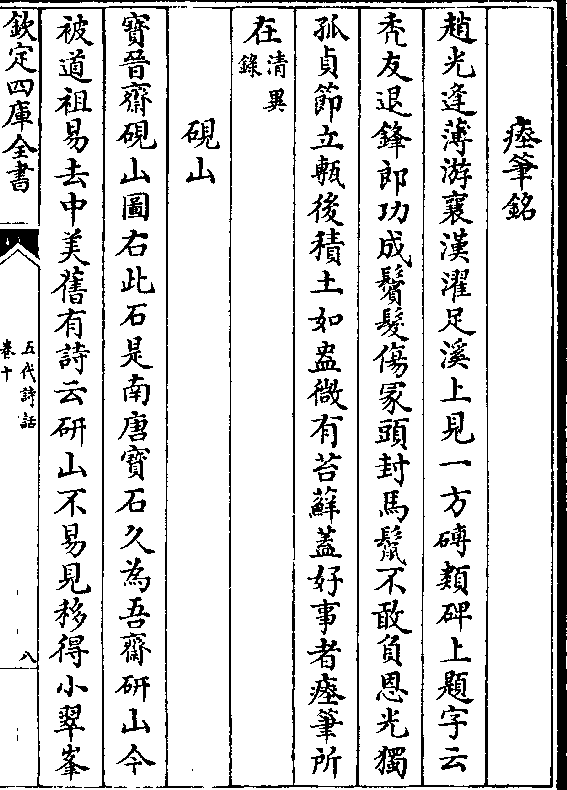 瘞筆銘
趙光逢薄游襄漢濯足溪上見一方磚類碑上題字云
秃友退鋒郎功成鬢髮傷冢頭封馬鬛不敢負恩光獨
孤貞節立甎後積土如盎微有苔蘚蓋好事者瘞筆所
在清異録
硯山
寶晉齋硯山圖右此石是南唐寶石久為吾齋研山今
被道祖易去中美舊有詩云研山不易見移得小翠峯
欽定四庫全書
五代詩話
卷十
八